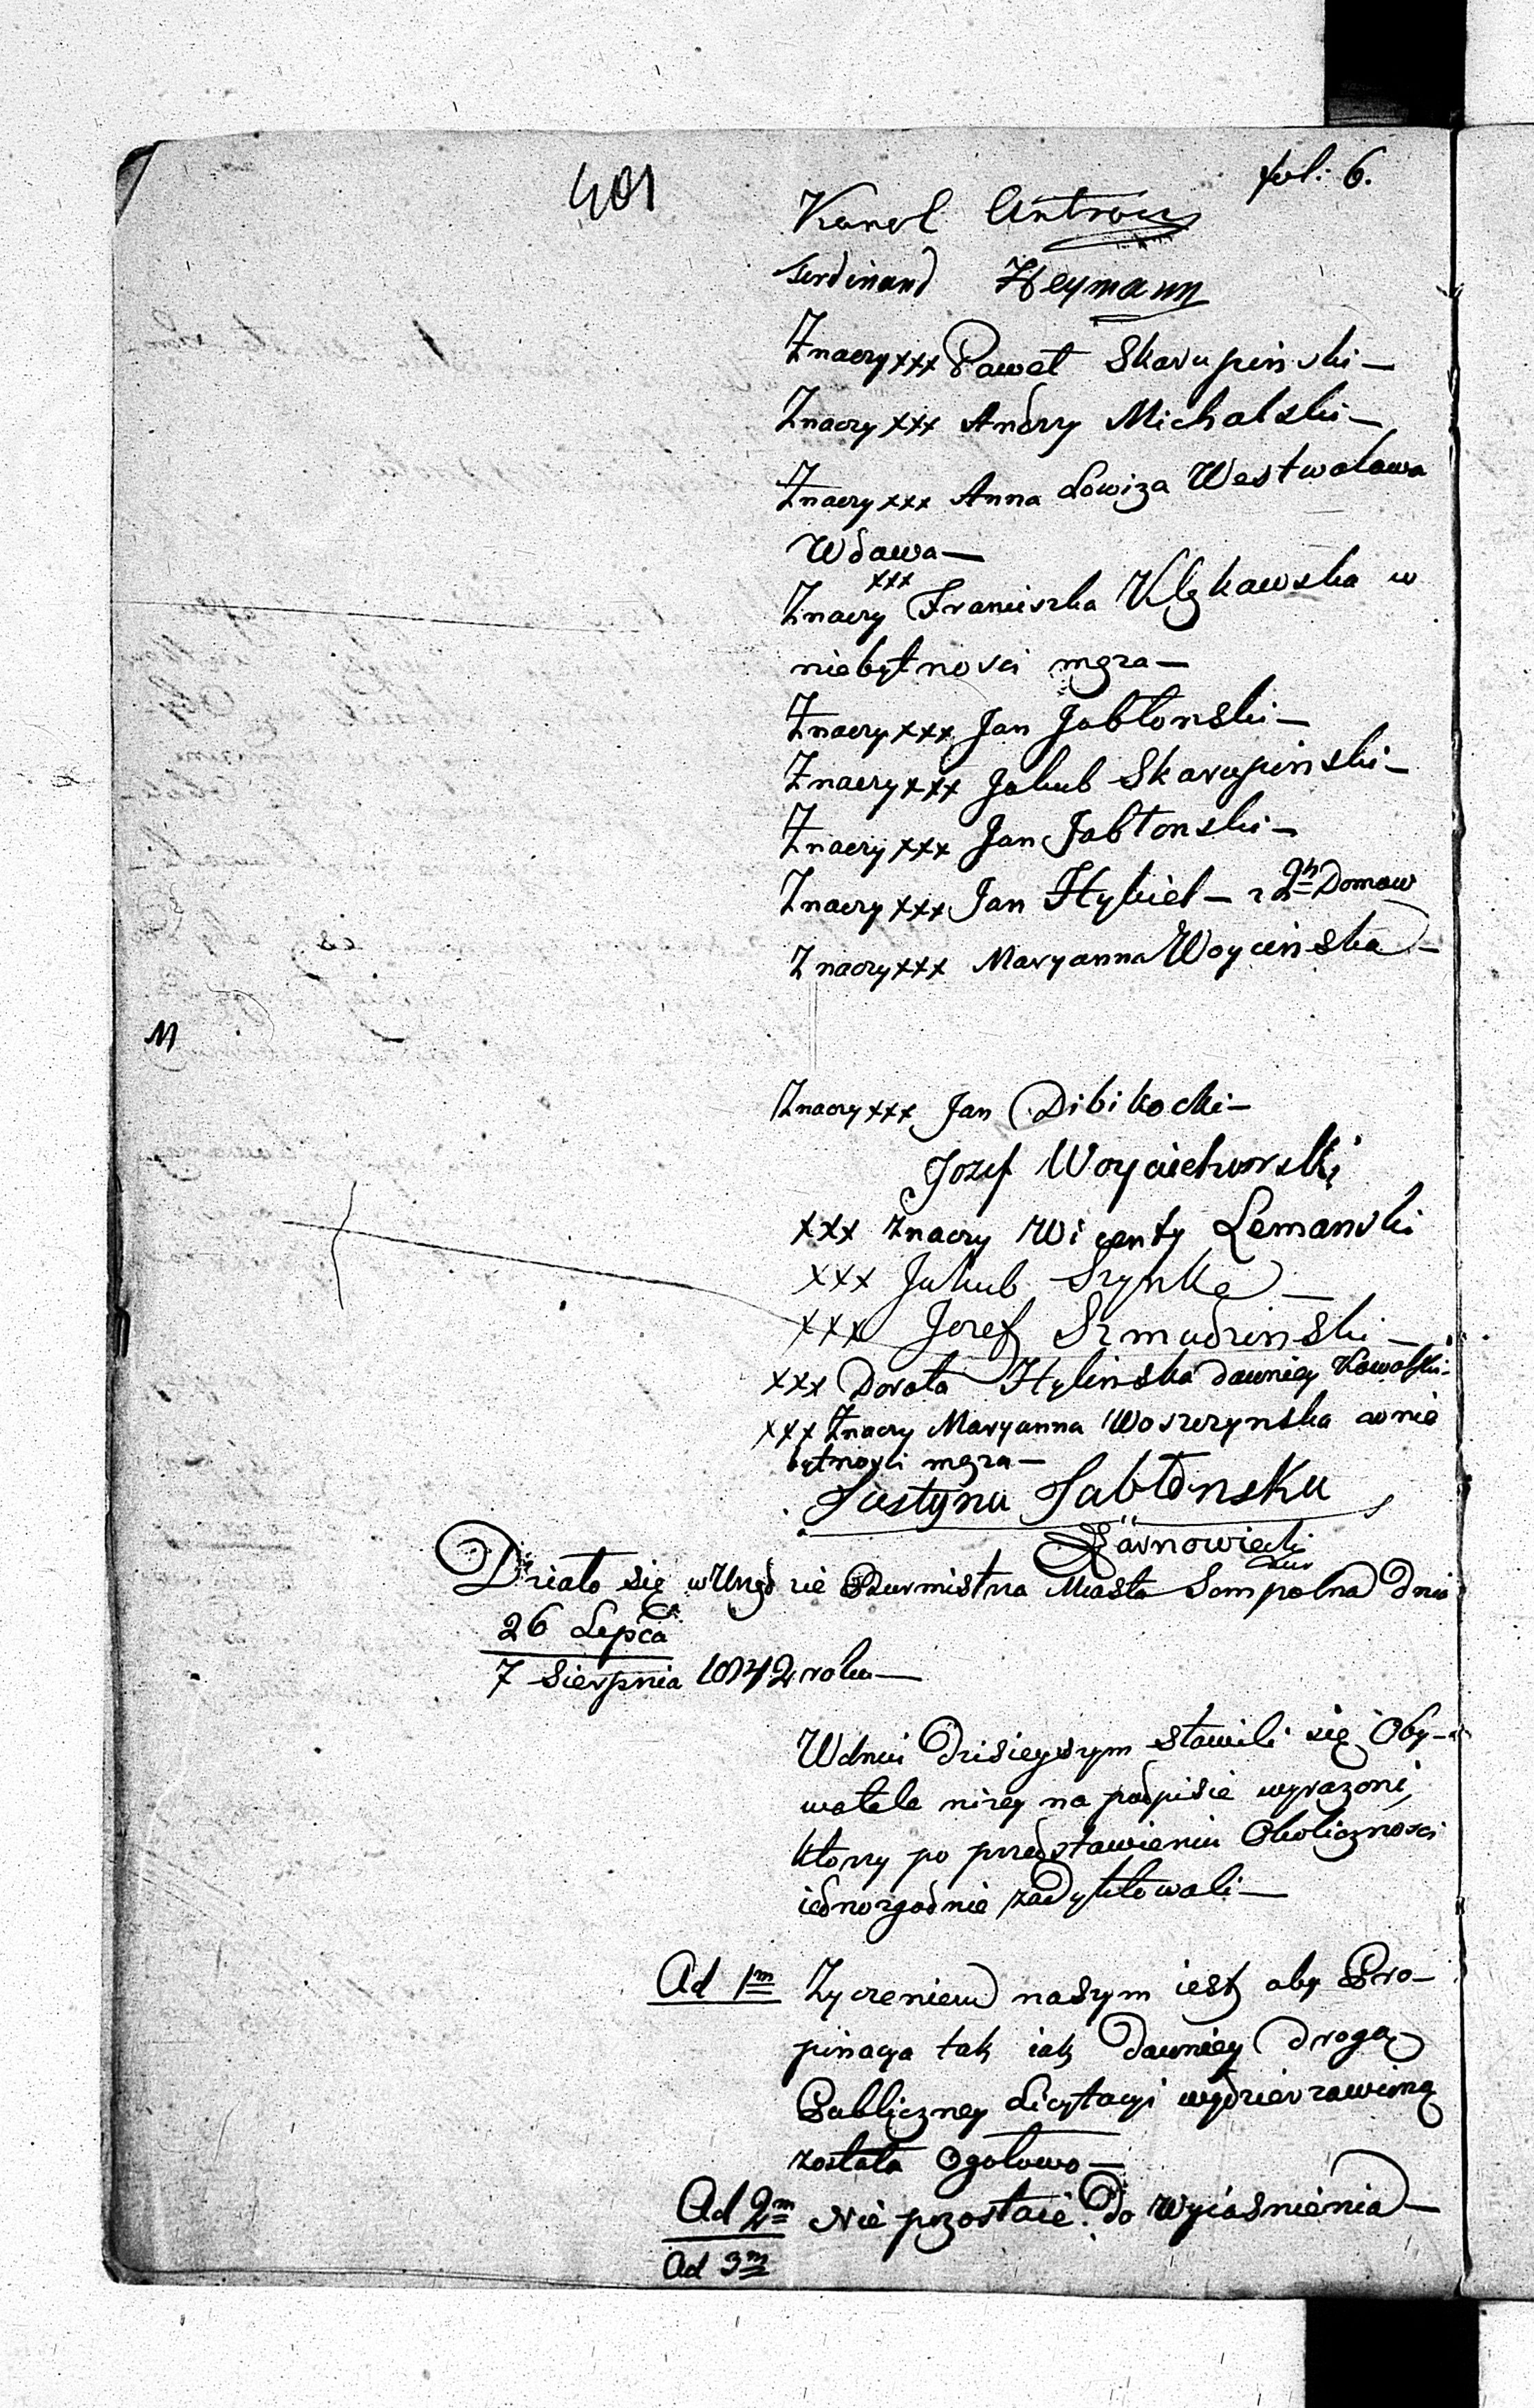 401
fol: 6.
Karol
Ferdinand Heymann
Znaczy xxx Paweł Skarupinski —
Znaczy xxx Andrzy Michalski —
Znaczy xxx Anna Lowiza Westwalowa
Wdowa —
xxx
Znaczy Franciszka Klękawska w
niebytnosci męża —
Znaczy xxx Jan Jabłonski —
Znaczy xxx Jakub Skarupinski —
Znaczy xxx Jan Jabłonski —
Znaczy xxx Jan Hybiel — z 2h Domow
Znaczy xxx Maryanna Woycinska —
Znaczy xxx Jan Dibikocki —
Jozef Woyciechowski
xxx Znaczy Wicenty Lemanski
xxx Jakub Szynka —
xxx Jozef Szmudzinski —
xxx Dorota Hylinska dawniey Kowalski
xxx Znaczy Maryanna Woszczynska w nie
bytnosci męża —
Justyna Jabłonska
Działo się w Urzędzie Burmistrza Miasta Sompolna Dnia
26 Lipca
7 Sierpnia 1842 roku —
W dniu Dzisieyszym stawili się Oby-
watele nizey na podpisie wyrazoni,
ktorzy po przedstawieniu Okoliczności
iednozgodnie zadyktowali —
Ad 1m Zyczeniem naszym iest aby Pro-
pinacya tak iak dawniey drogą
Publiczney Licytacyi wydzierzawioną
została Ogołowo —
Ad 2m Nie pozostaie do Wyiasnienia —
Ad 3m